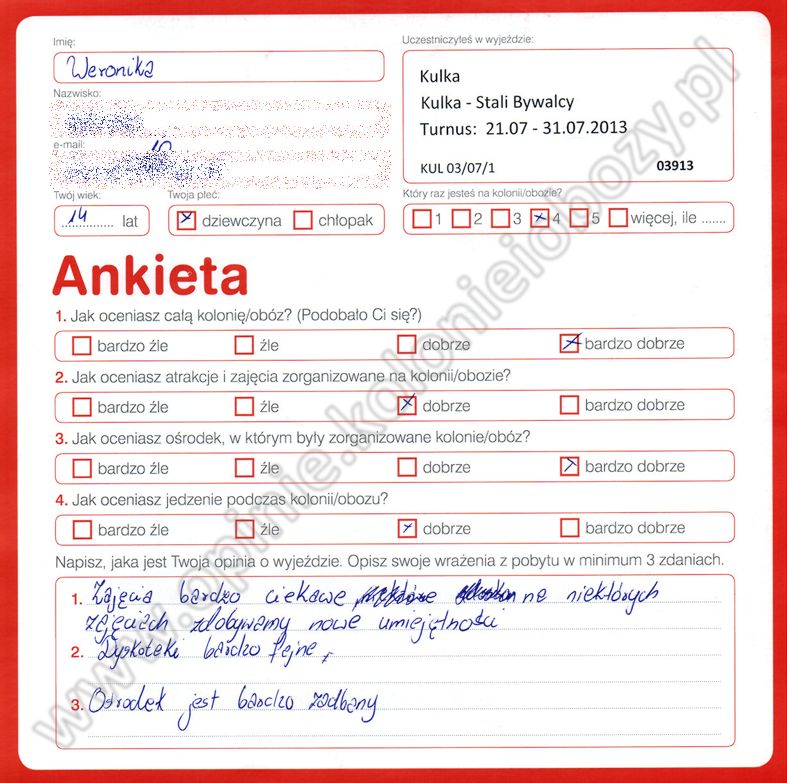 Imię:
Weronika
Uczestniczyłeś w wyjeździe:
Kulka
Kulka - Stali Bywalcy
Turnus: 21.07 - 31.07.2013
KUL 03/07/1 03913
Nazwisko:
e-mail:
Twój wiek:
14 lat
Twoja płeć:
dziewczyna chłopak
Który raz jesteś na kolonii/obozie?
1 2 3 4 5 więcej, ile .......
Ankieta
1. Jak oceniasz całą kolonię/obóz? (Podobało Ci się?)
bardzo źle źle dobrze bardzo dobrze
2. Jak oceniasz atrakcje i zajęcia zorganizowane na kolonii/obozie?
bardzo źle źle dobrze bardzo dobrze
3. Jak oceniasz ośrodek, w którym były zorganizowane kolonie/obóz?
bardzo źle źle dobrze bardzo dobrze
4. Jak oceniasz jedzenie podczas kolonii/obozu?
bardzo źle źle dobrze bardzo dobrze
Napisz, jaka jest Twoja opinia o wyjeździe. Opisz swoje wrażenia z pobytu w minimum 3 zdaniach.
1. Zajęcia bardzo ciekawe, na niektórych
zajęciach zdobywamy nowe umiejętności
2. Dyskoteki bardzo fajne,
3. Ośrodek jest bardzo zadbany
www.opinie.kolonieiobozy.pl